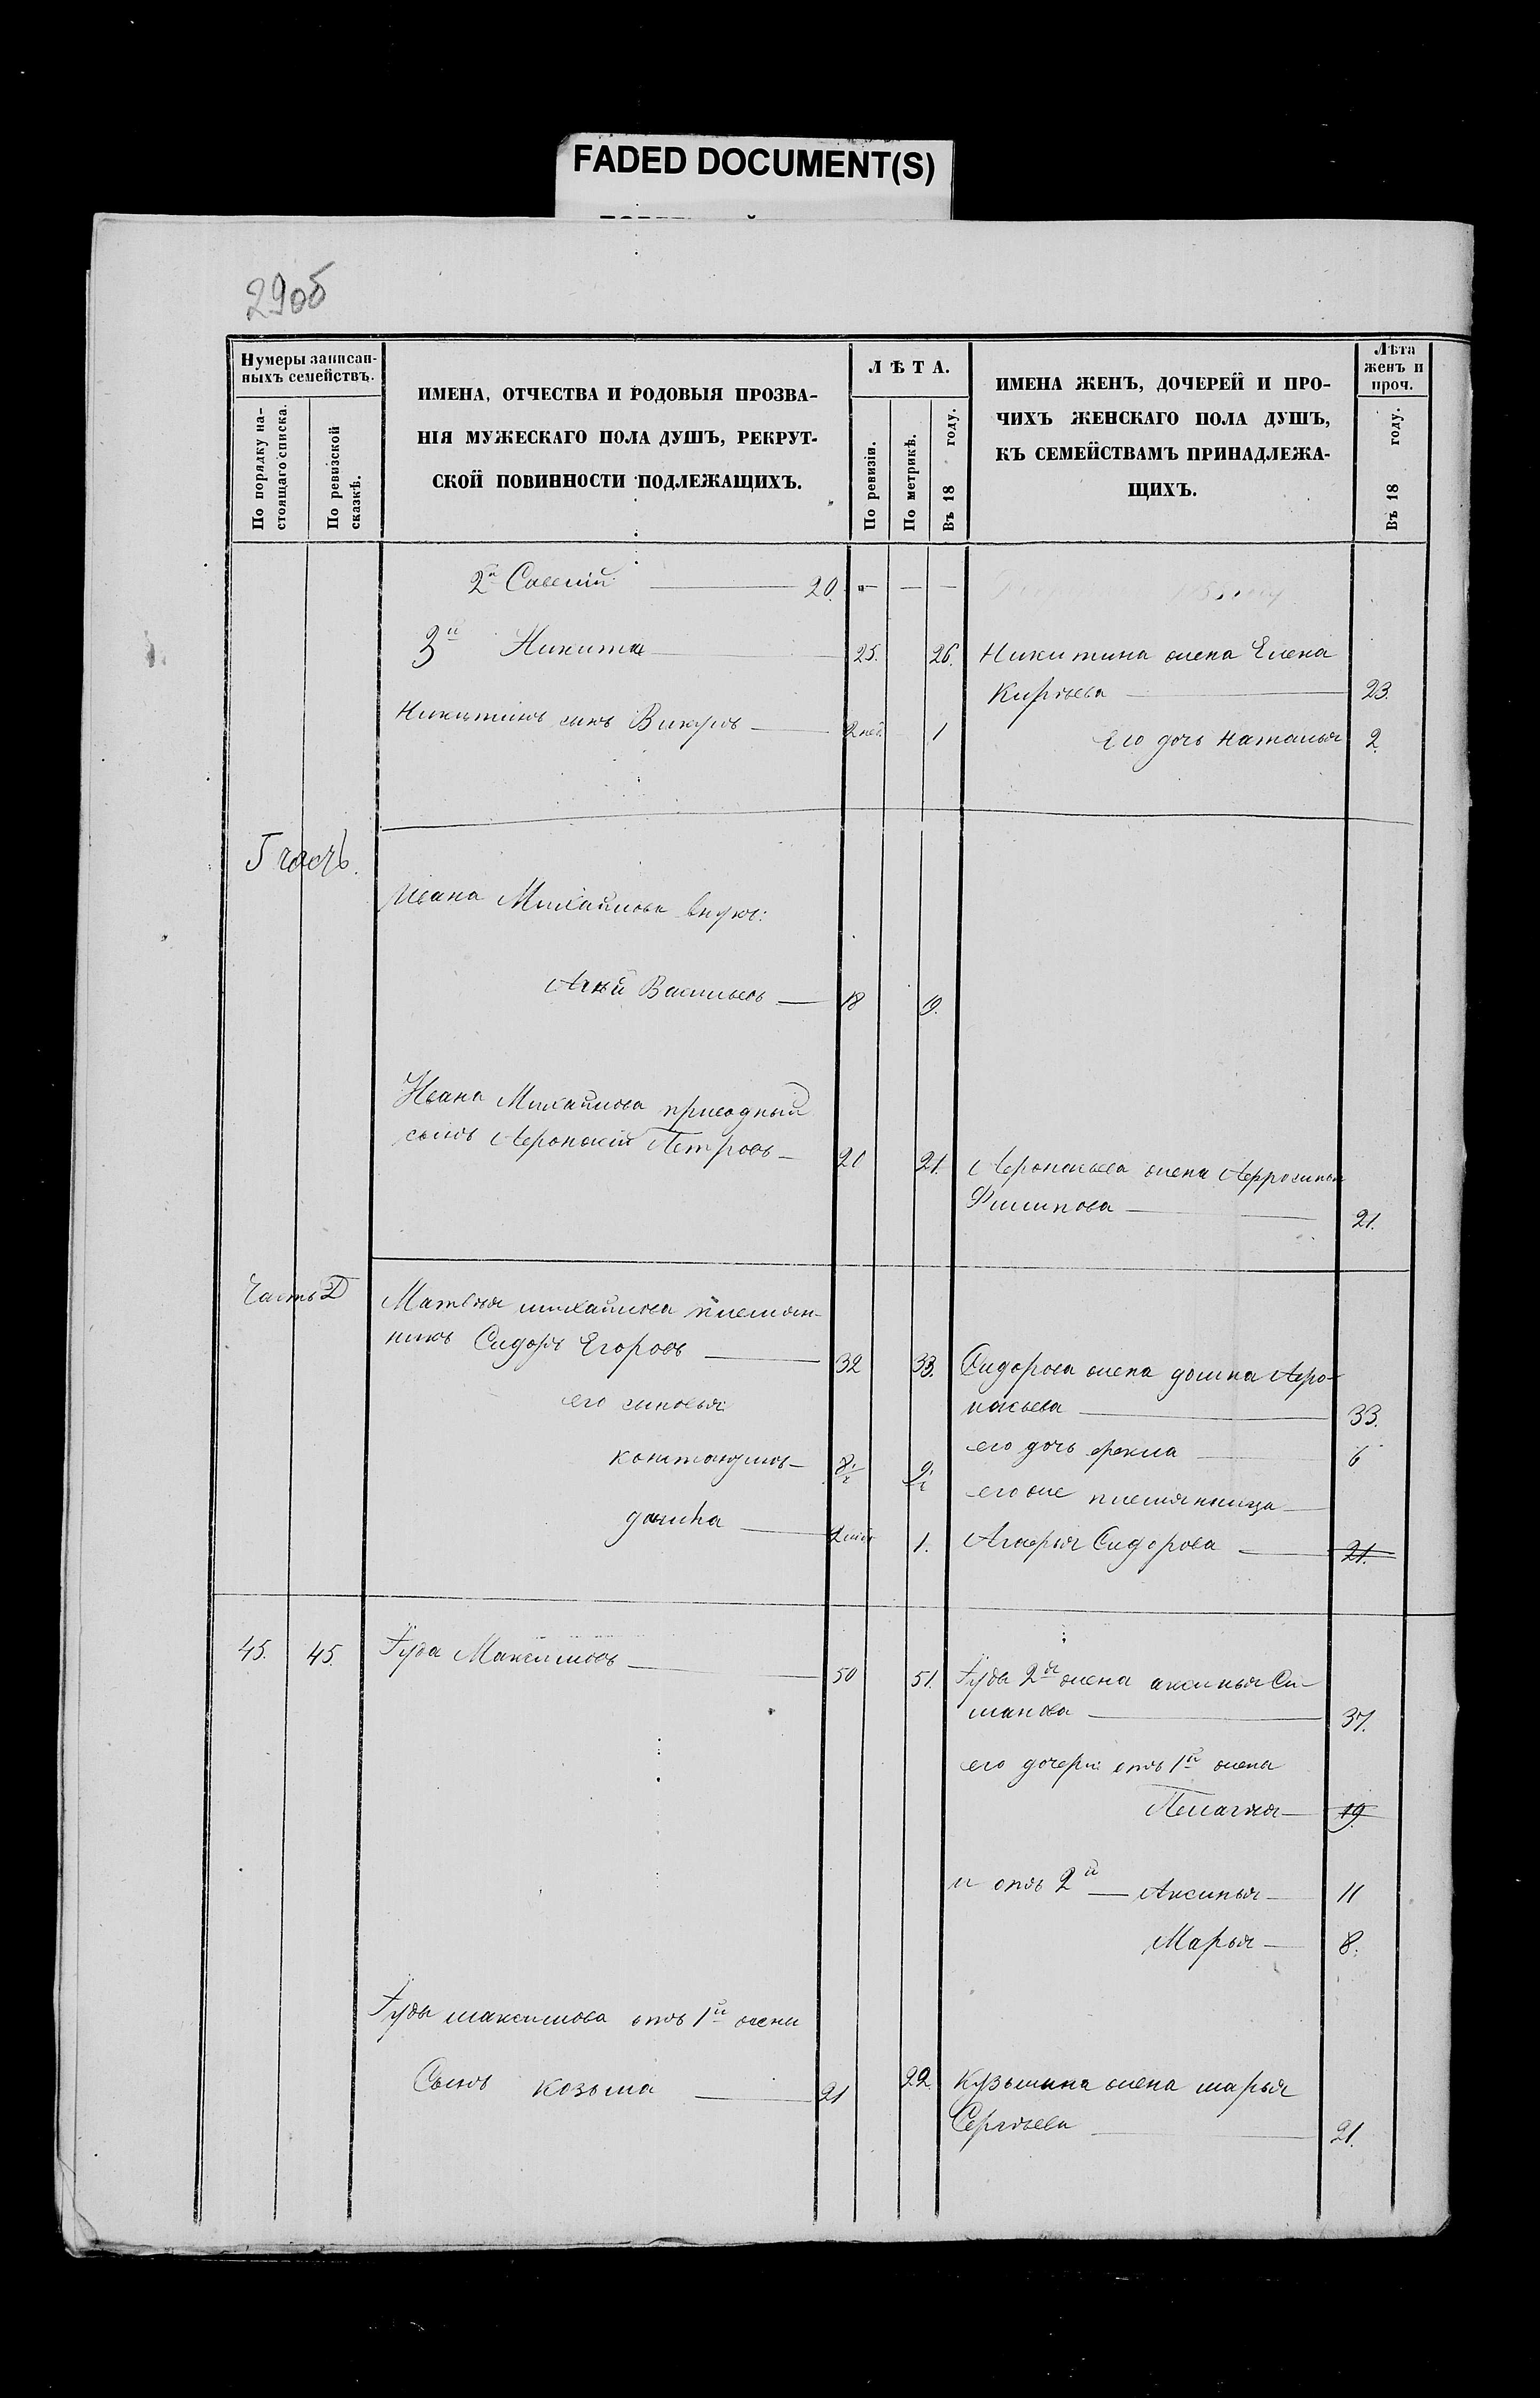 FADED DOCUMENT(S)
29об
Нумеры записан-
ныхъ семействъ.
По порядку на-
стоящаго списка.
По ревизской
сказкѣ.
ИМЕНА, ОТЧЕСТВА И РОДОВЫЯ ПРОЗВА-
НІЯ МУЖЕСКАГО ПОЛА ДУШЪ, РЕКРУТ-
СКОЙ ПОВИННОСТИ ПОДЛЕЖАЩИХЪ.
ЛѢТА.
По ревизіи.
По метрикѣ.
Въ 18 году.
ИМЕНА ЖЕНЪ, ДОЧЕРЕЙ И ПРО-
ЧИХЪ ЖЕНСКАГО ПОЛА ДУШЪ,
КЪ СЕМЕЙСТВАМЪ ПРИНАДЛЕЖА-
ЩИХЪ.
Лѣта
женъ и
проч.
Въ 18 году.
2й Савелій — 20. — — —
3й Никита — 25. 26. Никитина жена Елена
Кирѣева — 23.
Никитинъ сынъ Викулъ — 1
его дочь Наталья 2.
Г часть.
Ивана Михайлова внукъ:
Васильевъ — 18
Ивана Михайлова приводный
сынъ Афонасій Петровъ — 20 21. Афонасьева жена Афросинья
Филипова — 21.
Часть Д
Матвѣя михайлова племян-
никъ Сидоръ Егоровъ — 32 33. Сидорова жена домна Афо-
насьева — 33.
его сыновья:
его дочь фекла — 6
констянтинъ — 8½ 9½
его же племянница —
данила — 1. Агафья Сидорова — 21.
45. 45. Іуда Максимовъ — 50 51. Іуды 2я жена аксинья Си-
манова — 37.
его дочери отъ 1й жены
Пелагия — 19.
и отъ 2й — Аксинья — 11
Марья — 8.
Іуды максимова отъ 1й жены
Сынъ козьма — 21 22. Кузьмина жена марья
Сергѣева — 21.